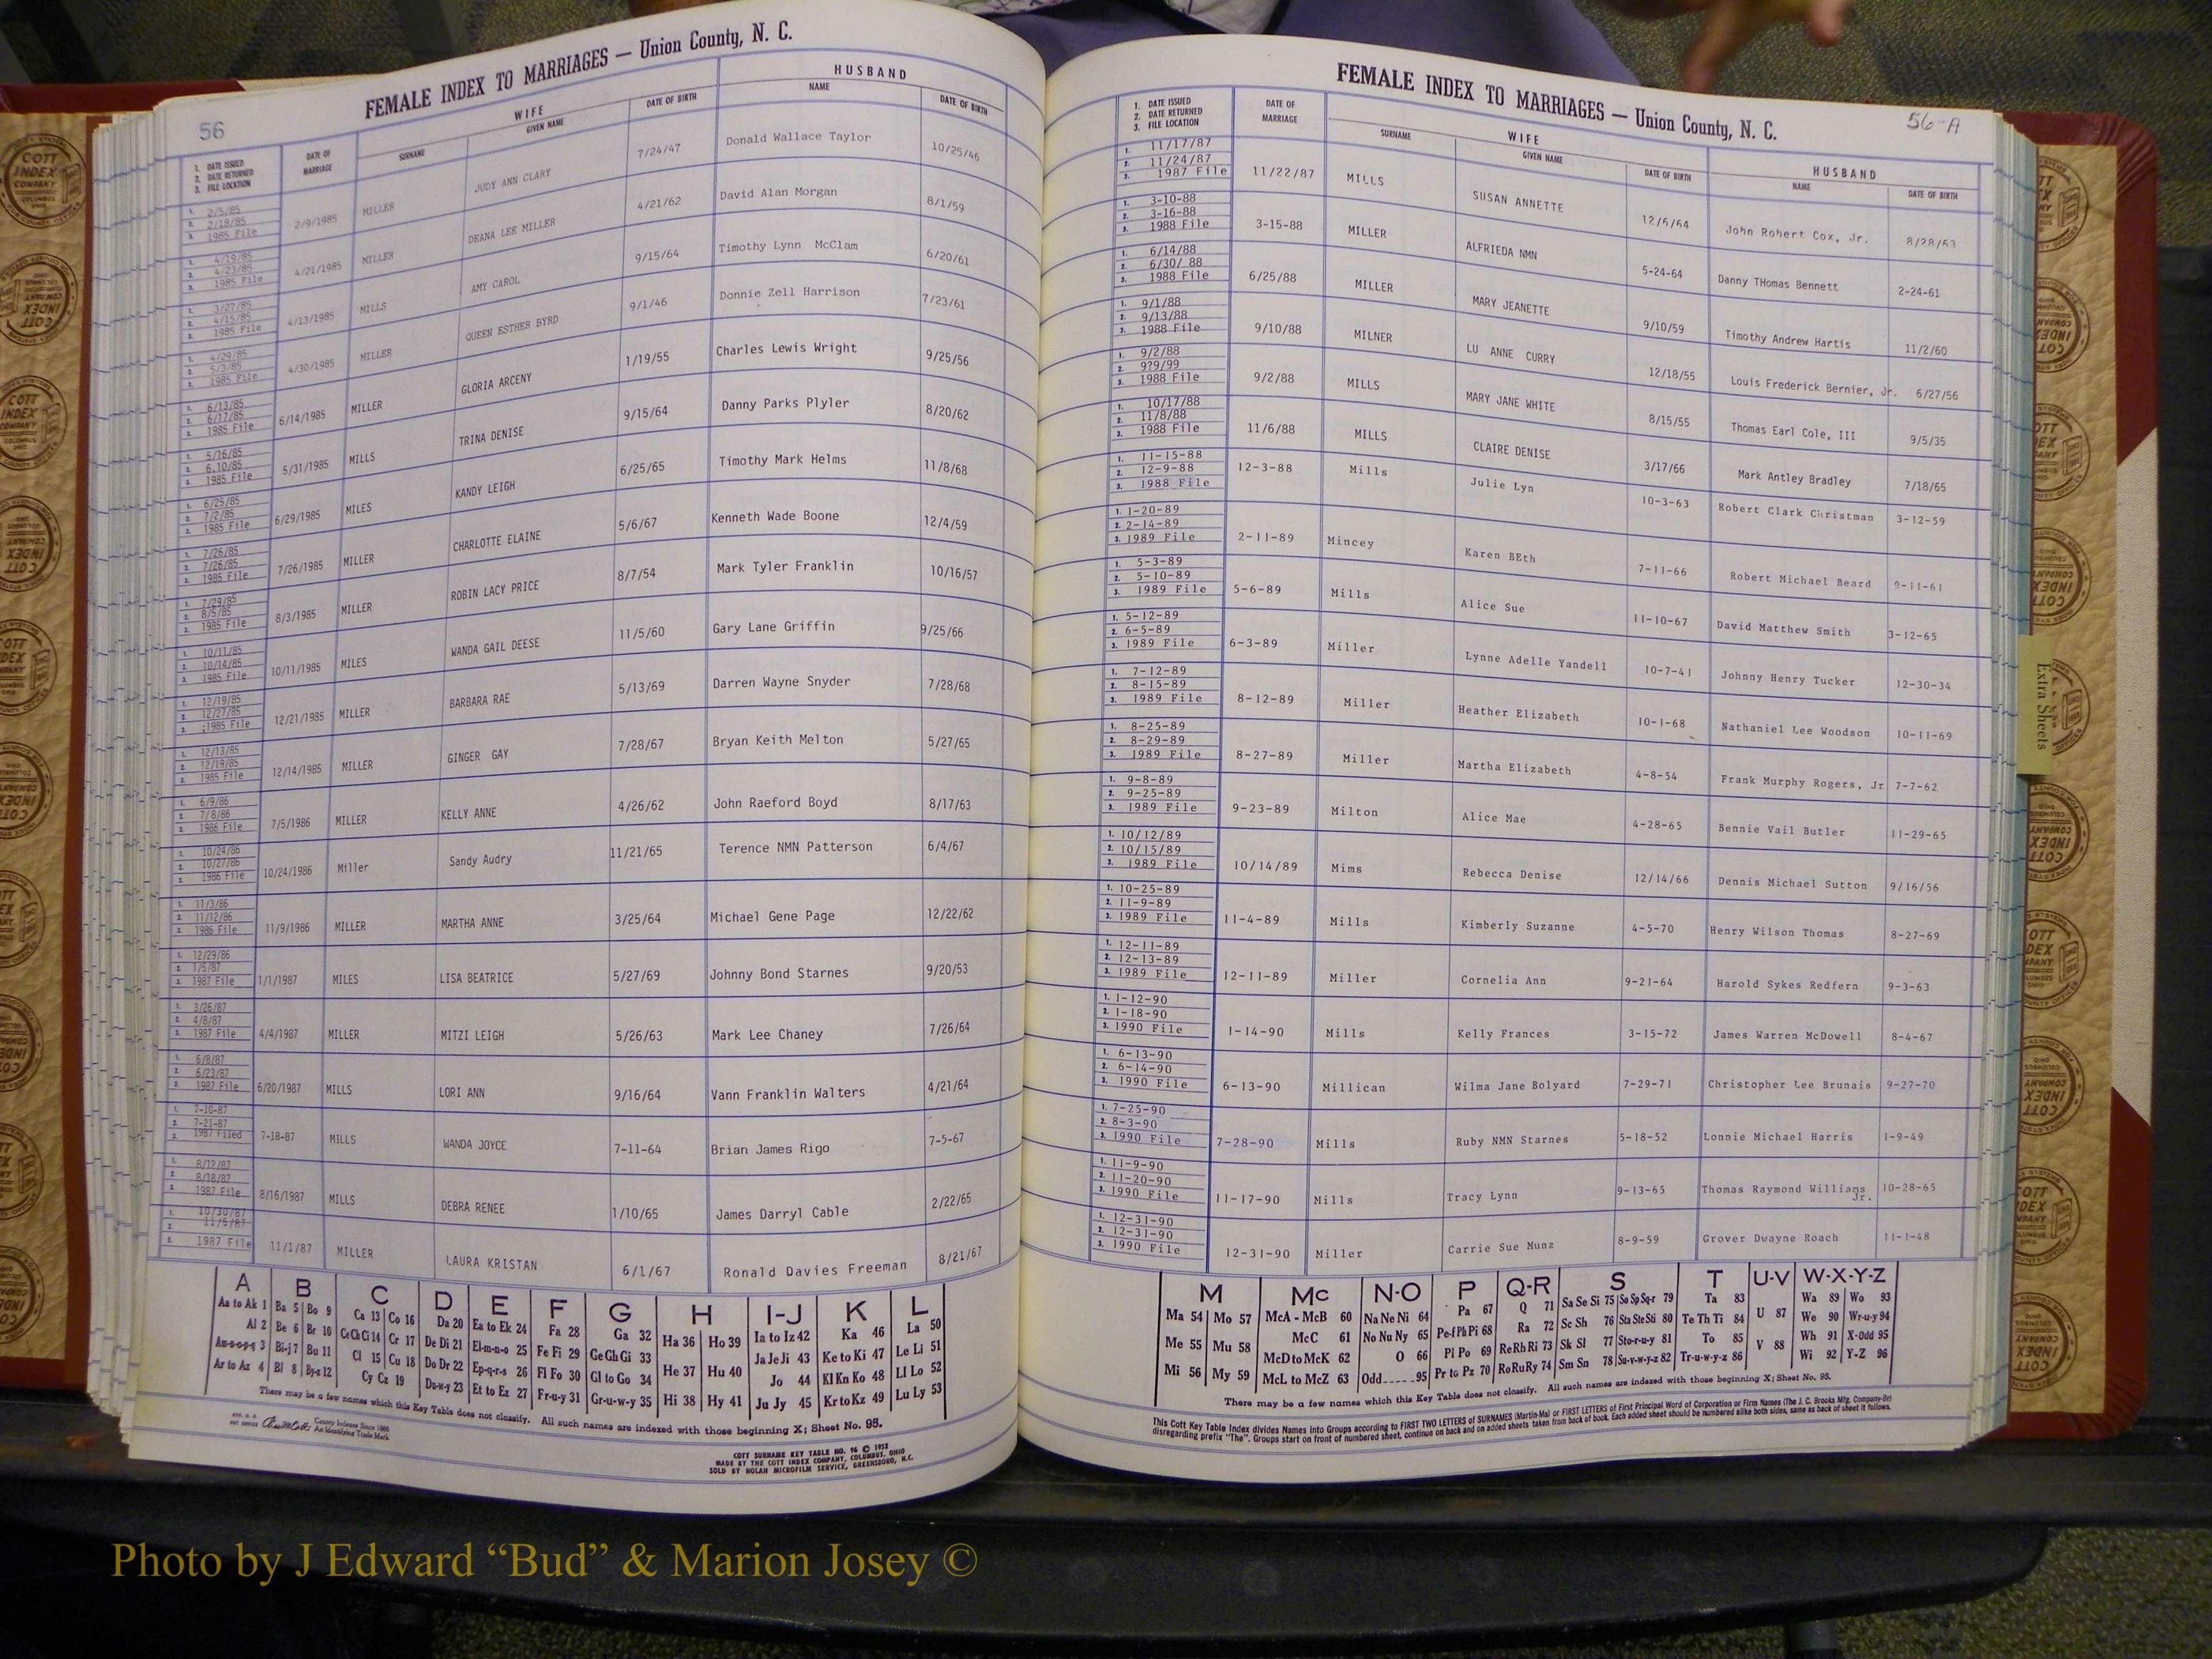 56
FEMALE INDEX TO MARRIAGES — Union County, N. C.
1. DATE ISSUED
2. DATE RETURNED
3. FILE LOCATION
DATE OF MARRIAGE
WIFE
SURNAME
GIVEN NAME
DATE OF BIRTH
HUSBAND
NAME
DATE OF BIRTH
1. 2/5/85
2. 2/18/85
3. 1985 File
2/9/1985 MILLER JUDY ANN CLARY 7/24/47 Donald Wallace Taylor 10/25/46
1. 4/19/85
2. 4/23/85
3. 1985 File
4/21/1985 MILLER DEANA LEE MILLER 4/21/62 David Alan Morgan 8/1/59
1. 3/27/85
2. 4/15/85
3. 1985 File
4/13/1985 MILLS AMY CAROL 9/15/64 Timothy Lynn McClam 6/20/61
1. 4/29/85
2. 5/3/85
3. 1985 File
4/30/1985 MILLER QUEEN ESTHER BYRD 9/1/46 Donnie Zell Harrison 7/23/61
1. 6/13/85
2. 6/17/85
3. 1985 File
6/14/1985 MILLER GLORIA ARCENY 1/19/55 Charles Lewis Wright 9/25/56
1. 5/16/85
2. 6.10/85
3. 1985 File
5/31/1985 MILLS TRINA DENISE 9/15/64 Danny Parks Plyler 8/20/62
1. 6/25/85
2. 7/2/85
3. 1985 File
6/29/1985 MILES KANDY LEIGH 6/25/65 Timothy Mark Helms 11/8/68
1. 7/26/85
2. 7/26/85
3. 1985 File
7/26/1985 MILLER CHARLOTTE ELAINE 5/6/67 Kenneth Wade Boone 12/4/59
1. 7/29/85
2. 8/5/85
3. 1985 File
8/3/1985 MILLER ROBIN LACY PRICE 8/7/54 Mark Tyler Franklin 10/16/57
1. 10/11/85
2. 10/14/85
3. 1985 File
10/11/1985 MILES WANDA GAIL DEESE 11/5/60 Gary Lane Griffin 9/25/66
1. 12/19/85
2. 12/27/85
3. :1985 File
12/21/1985 MILLER BARBARA RAE 5/13/69 Darren Wayne Snyder 7/28/68
1. 12/13/85
2. 12/19/85
3. 1985 File
12/14/1985 MILLER GINGER GAY 7/28/67 Bryan Keith Melton 5/27/65
1. 6/9/86
2. 7/8/86
3. 1986 File
7/5/1986 MILLER KELLY ANNE 4/26/62 John Raeford Boyd 8/17/63
1. 10/24/86
2. 10/27/86
3. 1986 File
10/24/1986 Miller Sandy Audry 11/21/65 Terence NMN Patterson 6/4/67
1. 11/3/86
2. 11/12/86
3. 1986 File
11/9/1986 MILLER MARTHA ANNE 3/25/64 Michael Gene Page 12/22/62
1. 12/29/86
2. 1/5/87
3. 1987 File
1/1/1987 MILES LISA BEATRICE 5/27/69 Johnny Bond Starnes 9/20/53
1. 3/26/87
2. 4/8/87
3. 1987 File
4/4/1987 MILLER MITZI LEIGH 5/26/63 Mark Lee Chaney 7/26/64
1. 6/8/87
2. 6/23/87
3. 1987 File
6/20/1987 MILLS LORI ANN 9/16/64 Vann Franklin Walters 4/21/64
1. 7-10-87
2. 7-21-87
3. 1987 Filed
7-18-87 MILLS WANDA JOYCE 7-11-64 Brian James Rigo 7-5-67
1. 8/12/87
2. 8/18/87
3. 1987 File
8/16/1987 MILLS DEBRA RENEE 1/10/65 James Darryl Cable 2/22/65
1. 10/30/87
2. 11/5/87
3. 1987 File
11/1/87 MILLER LAURA KRISTAN 6/1/67 Ronald Davies Freeman 8/21/67
A B C D E F G H I-J K L
Aa to Ak 1 Ba 5 Bo 9 Ca 13 Co 16 Da 20 Ea to Ek 24 Fa 28 Ga 32 Ha 36 Ho 39 Ia to Iz 42 Ka 46 La 50
Al 2 Be 6 Br 10 Ce Ch Ci 14 Cr 17 De Di 21 El-m-n-o 25 Fe Fi 29 Ge Gh Gi 33 Ja Je Ji 43 Ke to Ki 47 Le Li 51
Am-n-o-p-q 3 Bi-j 7 Bu 11 Cl 15 Cu 18 Do Dr 22 Ep-q-r-s 26 Fl Fo 30 Gl to Go 34 He 37 Hu 40 Jo 44 Kl Kn Ko 48 Ll Lo 52
Ar to Az 4 Bl 8 By-z 12 Cy Cz 19 Du-w-y 23 Et to Ez 27 Fr-u-y 31 Gr-u-w-y 35 Hi 38 Hy 41 Ju Jy 45 Kr to Kz 49 Lu Ly 53
There may be a few names which this Key Table does not classify. All such names are indexed with those beginning X; Sheet No. 95.
County Indexes Since 1888
An Identifying Trade Mark
COTT SURNAME KEY TABLE NO. 96 © 1952
MADE BY THE COTT INDEX COMPANY, COLUMBUS, OHIO
SOLD BY NOLAN MICROFILM SERVICE, GREENSBORO, N.C.
FEMALE INDEX TO MARRIAGES — Union County, N. C.
56-A
1. DATE ISSUED
2. DATE RETURNED
3. FILE LOCATION
DATE OF MARRIAGE
WIFE
SURNAME
GIVEN NAME
DATE OF BIRTH
HUSBAND
NAME
DATE OF BIRTH
1. 11/17/87
2. 11/24/87
3. 1987 File
11/22/87 MILLS SUSAN ANNETTE 12/6/64 John Robert Cox, Jr. 8/28/63
1. 3-10-88
2. 3-16-88
3. 1988 File
3-15-88 MILLER ALFRIEDA NMN 5-24-64 Danny THomas Bennett 2-24-61
1. 6/14/88
2. 6/30/ 88
3. 1988 File
6/25/88 MILLER MARY JEANETTE 9/10/59 Timothy Andrew Hartis 11/2/60
1. 9/1/88
2. 9/13/88
3. 1988 File
9/10/88 MILNER LU ANNE CURRY 12/18/55 Louis Frederick Bernier, Jr. 6/27/56
1. 9/2/88
2. 9?9/99
3. 1988 File
9/2/88 MILLS MARY JANE WHITE 8/15/55 Thomas Earl Cole, III 9/5/35
1. 10/17/88
2. 11/8/88
3. 1988 File
11/6/88 MILLS CLAIRE DENISE 3/17/66 Mark Antley Bradley 7/18/65
1. 11-15-88
2. 12-9-88
3. 1988 File
12-3-88 Mills Julie Lyn 10-3-63 Robert Clark Christman 3-12-59
1. 1-20-89
2. 2-14-89
3. 1989 File
2-11-89 Mincey Karen BEth 7-11-66 Robert Michael Beard 9-11-61
1. 5-3-89
2. 5-10-89
3. 1989 File
5-6-89 Mills Alice Sue 11-10-67 David Matthew Smith 3-12-65
1. 5-12-89
2. 6-5-89
3. 1989 File
6-3-89 Miller Lynne Adelle Yandell 10-7-41 Johnny Henry Tucker 12-30-34
1. 7-12-89
2. 8-15-89
3. 1989 File
8-12-89 Miller Heather Elizabeth 10-1-68 Nathaniel Lee Woodson 10-11-69
1. 8-25-89
2. 8-29-89
3. 1989 File
8-27-89 Miller Martha Elizabeth 4-8-54 Frank Murphy Rogers, Jr 7-7-62
1. 9-8-89
2. 9-25-89
3. 1989 File
9-23-89 Milton Alice Mae 4-28-65 Bennie Vail Butler 11-29-65
1. 10/12/89
2. 10/15/89
3. 1989 File
10/14/89 Mims Rebecca Denise 12/14/66 Dennis Michael Sutton 9/16/56
1. 10-25-89
2. 11-9-89
3. 1989 File
11-4-89 Mills Kimberly Suzanne 4-5-70 Henry Wilson Thomas 8-27-69
1. 12-11-89
2. 12-13-89
3. 1989 File
12-11-89 Miller Cornelia Ann 9-21-64 Harold Sykes Redfern 9-3-63
1. 1-12-90
2. 1-18-90
3. 1990 File
1-14-90 Mills Kelly Frances 3-15-72 James Warren McDowell 8-4-67
1. 6-13-90
2. 6-14-90
3. 1990 File
6-13-90 Millican Wilma Jane Bolyard 7-29-71 Christopher Lee Brunais 9-27-70
1. 7-25-90
2. 8-3-90
3. 1990 File
7-28-90 Mills Ruby NMN Starnes 5-18-52 Lonnie Michael Harris 1-9-49
1. 11-9-90
2. 11-20-90
3. 1990 File
11-17-90 Mills Tracy Lynn 9-13-65 Thomas Raymond Williams Jr. 10-28-65
1. 12-31-90
2. 12-31-90
3. 1990 File
12-31-90 Miller Carrie Sue Munz 8-9-59 Grover Dwayne Roach 11-1-48
M Mc N-O P Q-R S T U-V W-X-Y-Z
Ma 54 Mo 57 McA - McB 60 Na Ne Ni 64 Pa 67 Q 71 Sa Se Si 75 So Sp Sq-r 79 Ta 83 U 87 Wa 89 Wo 93
McC 61 No Nu Ny 65 Pe-f Ph Pi 68 Ra 72 Sc Sh 76 Sta Ste Sti 80 Te Th Ti 84 We 90 Wr-u-y 94
Me 55 Mu 58 McD to McK 62 O 66 Pl Po 69 Re Rh Ri 73 Sk Sl 77 Sto-r-u-y 81 To 85 V 88 Wh 91 X-Odd 95
Mi 56 My 59 McL to McZ 63 Odd-----95 Pr to Pz 70 Ro Ru Ry 74 Sm Sn 78 Su-v-w-y-z 82 Tr-u-w-y-z 86 Wi 92 Y-Z 96
There may be a few names which this Key Table does not classify. All such names are indexed with those beginning X; Sheet No. 95.
This Cott Key Table Index divides Names into Groups according to FIRST TWO LETTERS of SURNAMES (Martin-Ma) or FIRST LETTERS of First Principal Word of Corporation or Firm Names (The J. C. Brooks Mfg. Company-Br)
disregarding prefix "The". Groups start on front of numbered sheet, continue on back and on added sheets taken from back of book. Each added sheet should be numbered alike both sides, same as back of sheet it follows.
Extra Sheets
COTT INDEX COMPANY
Photo by J Edward “Bud” & Marion Josey ©